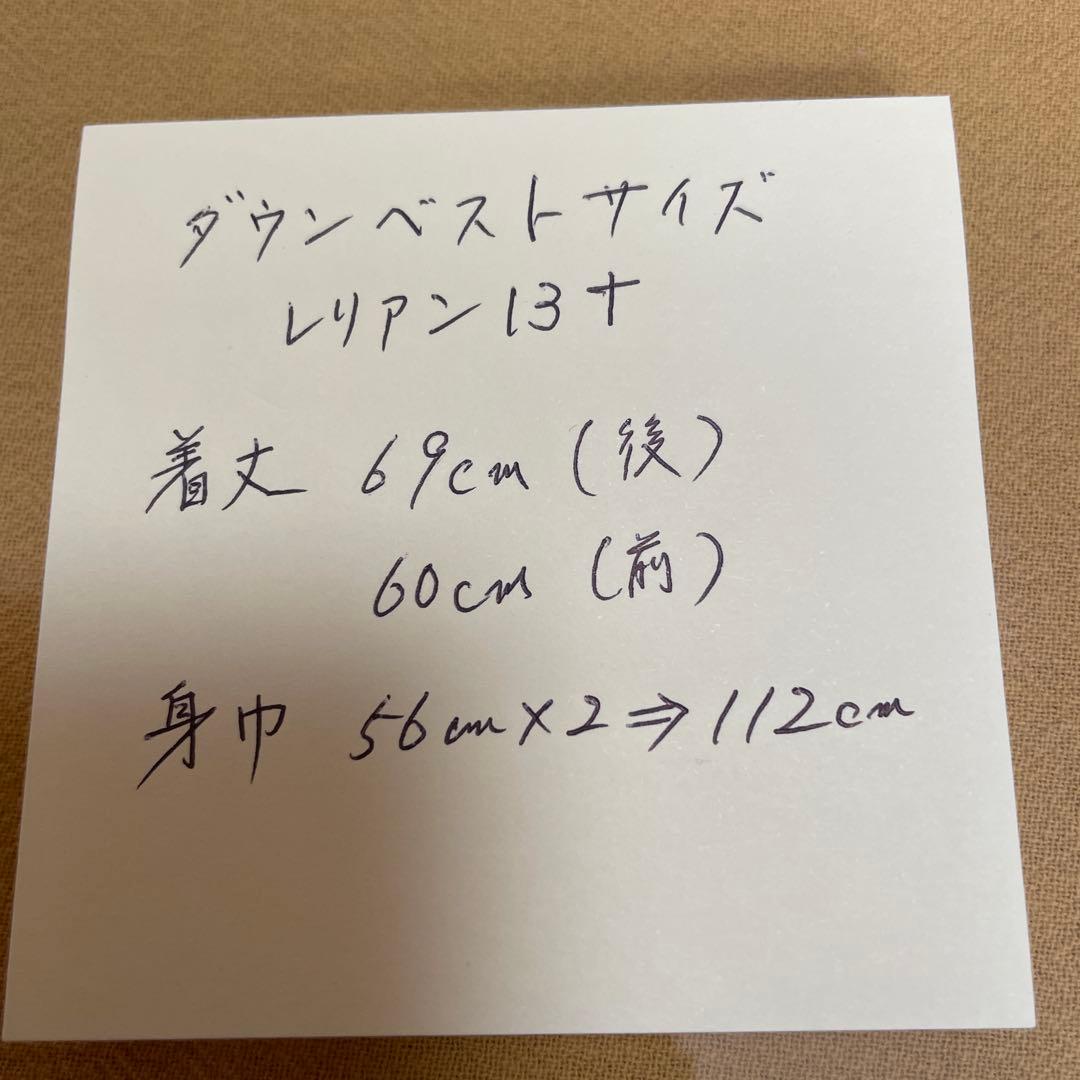 ダウンベストサイズ
レリアン13+
着丈 69cm (後)
60cm (前)
身巾 56cm×2⇒112cm